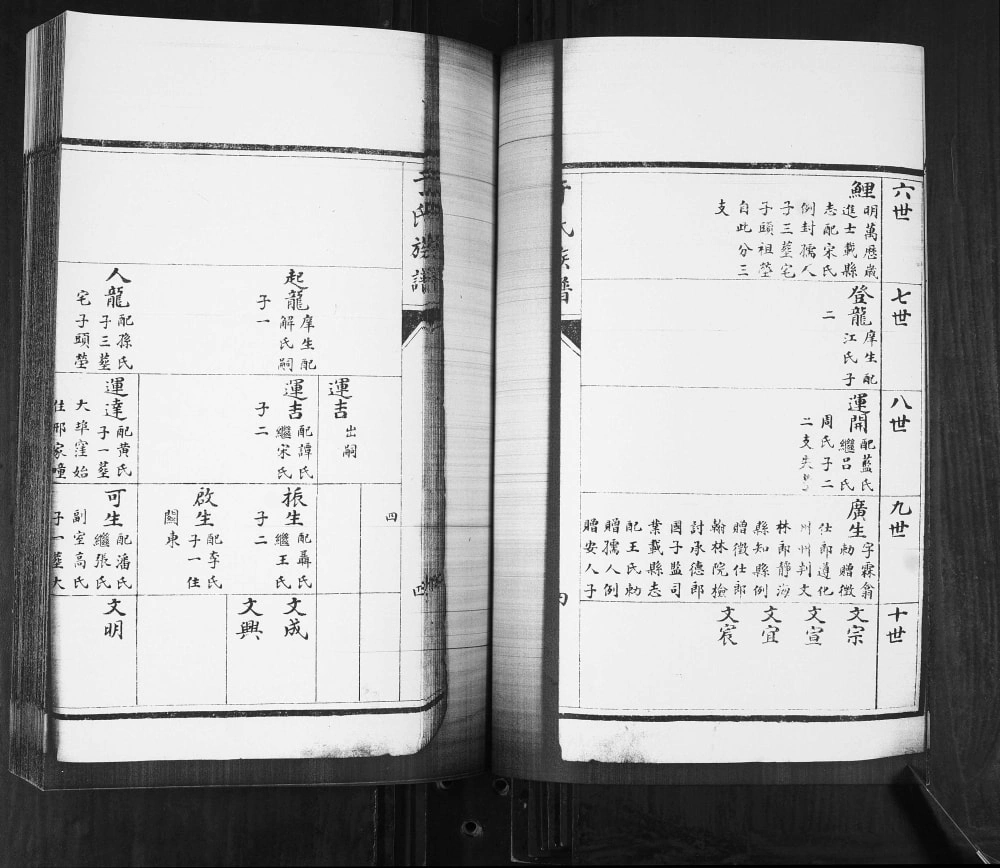 六世
鯉
明萬歷歲
進士載縣
志配宋氏
例封孺人
子三塟宅
子頭祖塋
自此分三
支
七世
登龍
庠生配
江氏子
二
八世
運開
配藍氏
繼呂氏
周氏子二
二支失
九世
廣生
字霖翁
勅贈徵
仕郎遵化
州州判文
林郎靜海
縣知縣例
贈徵仕郎
翰林院檢
討承德郎
國子監司
業載縣志
配王氏勅
贈孺人例
贈安人子
十世
文宗
文宣
文宜
文宸
氏族譜
四
運吉
出嗣
起龍
庠生配
解氏嗣
子一
運吉
配譚氏
繼宋氏
子二
振生
配聶氏
繼王氏
子二
文成
文興
啟生
配李氏
子一住
關東
人龍
配孫氏
子三塟
宅子頭塋
運達
配黄氏
子一塟
大埠窪始
住邢家疃
可生
配潘氏
繼張氏
副室高氏
子一塟大
文明